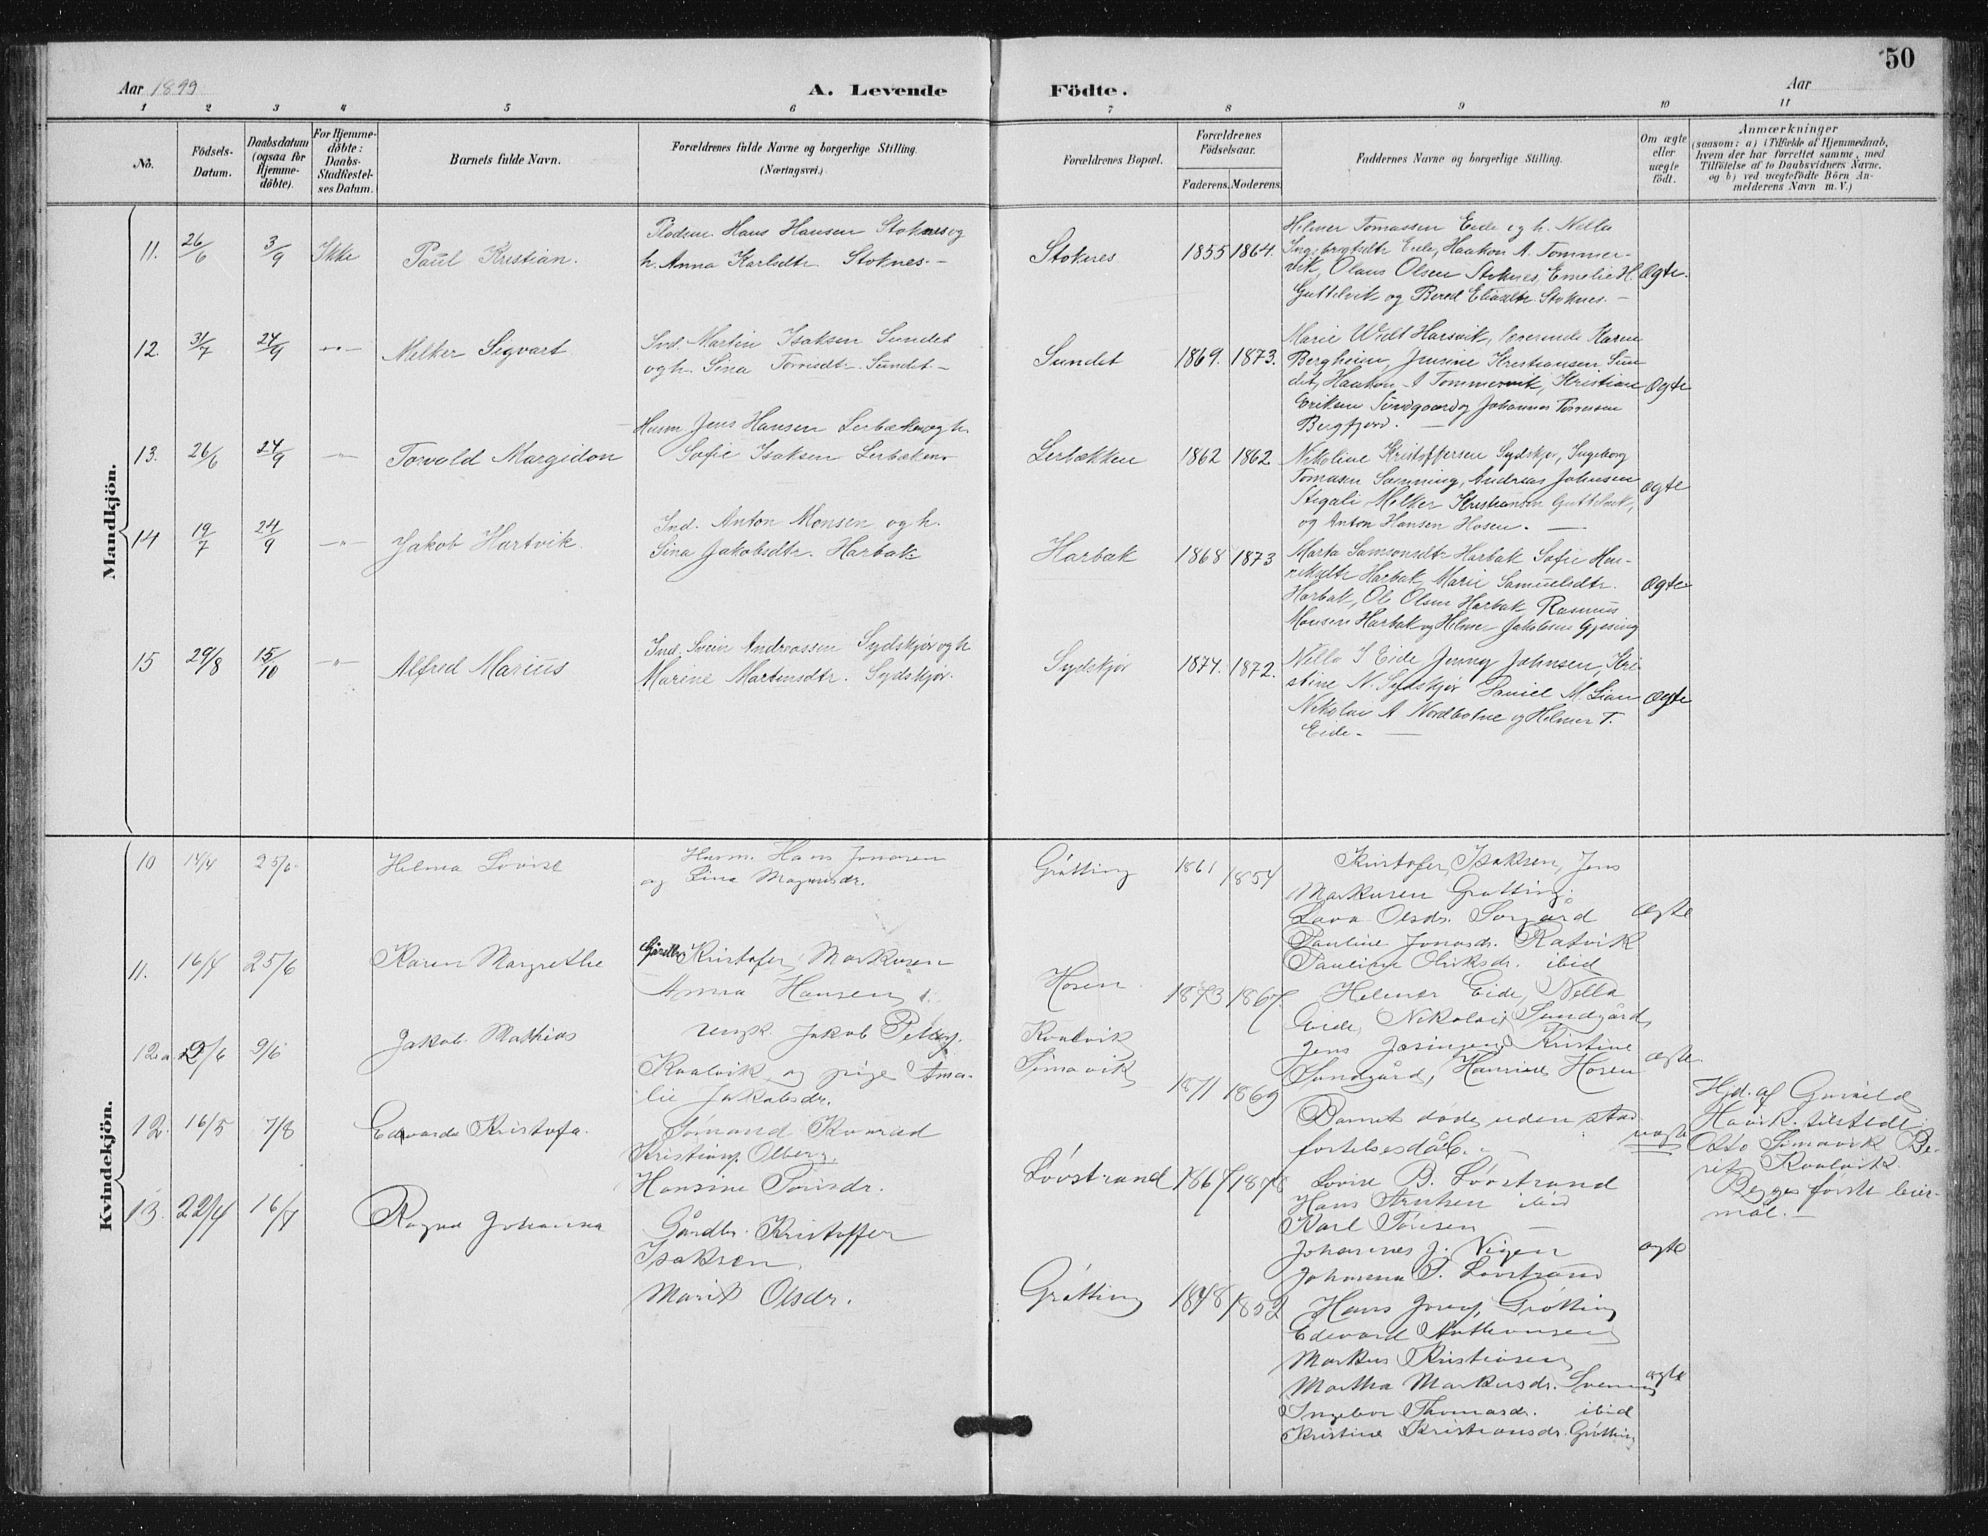 50
Aar 1899
A. Levende
Födte.
Aar
1 2 3 4 5 6 7 8 9 10 11
No.
Födsels-
Datum.
Daabsdatum
(ogsaa for
Hjemme-
döbte).
For Hjemme-
döbte:
Daabs-
Stadfæstel-
ses Datum.
Barnets fulde Navn.
Forældrenes fulde Navne og borgerlige Stilling.
(Næringsvei.)
Forældrenes Bopæl.
Forældrenes
Födselsaar.
Faderens.
Moderens.
Faddernes Navne og borgerlige Stilling.
Om ægte
eller
uægte
födt.
Anmærkninger
(saasom: a) i Tilfælde af Hjemmedaab,
hvem der har forrettet samme, med
Tilföielse af to Daabsvidners Navne,
og b) ved uægtefödte Börn An-
melderens Navn m. V.)
Mandkjön.
11. 26/6 3/9 Ikke Paul Kristian.
Hans Hansen Stoknes og
h. Anna Karlsdtr Stoknes.-
Stoknes 1855 1864.
Helmer Tomassen Eide og h. Nella
Ingebrigtsdtr Eide, Haakon A. Tommer-
vik, Olaus Olsen Stoknes, Emelie H.
Guttelvik og Bered Eliasdtr Stoknes.-
Ægte.
12. 31/7 24/9 -"- Melker Sigvart
Ind. Martin Isaksen Sundet
og h. Sina Torrisdtr Sundet-
Sundet 1869. 1873.
Marie Widt Harsvik, lærerinde Karen
Bergheim, Jensine Kristiansen Sun-
det, Haakon A Tommervik, Kristian
Eriksen Sundgaard og Johannes Torresen
Bergfjord. -
Ægte
13. 26/6 24/9 -"- Torvald Margidon
Husm Jens Hansen Lerbækken og h.
Sofie Isaksen Lerbækken-
Lerbækken 1862 1862
Nikoline Kristoffersen Sydskjør, Ingeborg
Tomasen Sæmning, Andreas Johnsen
Stigali Melker Kristiansen Guttelvik,
og Anton Hansen Hosen. -
ægte
14 19/7 24/9 -"- Jakob Hartvik.
Ind. Anton Monsen og h.
Sina Jakobsdtr. Harbak
Harbak 1868 1873
Marta Samsonsdtr Harbak Sofie Hen-
riksdtr Harbak, Marie Samuelsdtr.
Harbak, Ole Olsen Harbak Rasmus
Monsen Harbak og Helmer Jakobsen Gjæsing
Ægte
15 29/8 15/10 -"- Alfred Marius
Ind. Svein Andreassen Sydskjør og h
Marine Martensdtr. Sydskjør.
Sydskjør 1874. 1872.
Nella I Eide Jenny Johnsen, Kri-
stine N. Sydskjør Daniel M. Lian
Nikolai A Nordbotne og Helmer T.
Eide. -
Ægte
Kvindekjön.
10 14/4 25/6. Helma Lovise
Husm. Hans Jonasen
og Lina Magnusdr.
Gråtting 1861 1854
Kristofer Isaksen, Jens
Markusen Gråtting,
Lava Olsdr. Sorgård
Pauline Jonasdr. Ratvik
Pauline Olriksdr. ibid
Ægte
11. 16/4 25/6 Karen Margrethe
Gårdbr Kristofer Markusen
Anna Hansen
Hosen. 1873 1867.
Helmer Eide, Nella
Eide, Nikolai Sundgård,
Jens Jæsingen, Kristine
Sundgård, Hansine Hosen
ægte
12a 2/6 9/6 Jakob Mathias
ungk. Jakob Peters.
Kvalvik og pige Ama-
lie Jakobsdr.
Kvalvik
Simavik 1871 1869
Barnet døde uden stad-
fæstelsesdåb. -
uægte
Hjd. af Gunild
Havik tilstede
Otto Simavik Be-
rit Kvalvik.
Begges første leier-
mål. -
12. 16/5 7/8 Edvarda Kristofa.
Sömand Konrad
Kristians. Olberg.
Hansine Tönsdr.
Lövstrand 1867 1878
Lovise B. Lövstrand
Hans Arntsen ibid
Karl Tönsen -
Johannes J. Vigen
Johanna T. Lövstrand
ægte
13. 22/4 16/7 Ragna Johanna
Gårdbr. Kristoffer
Isaksen.
Marit Olsdr.
Gråtting 1848 1852
Hans Jonas. Gråtting
Edevard Mathiansen
Markus Kristiansen
Martha Markusdr. Svenning
Ingebor Thomasdr. ibid
Kristine Kristiansdr. Gråtting
ægte